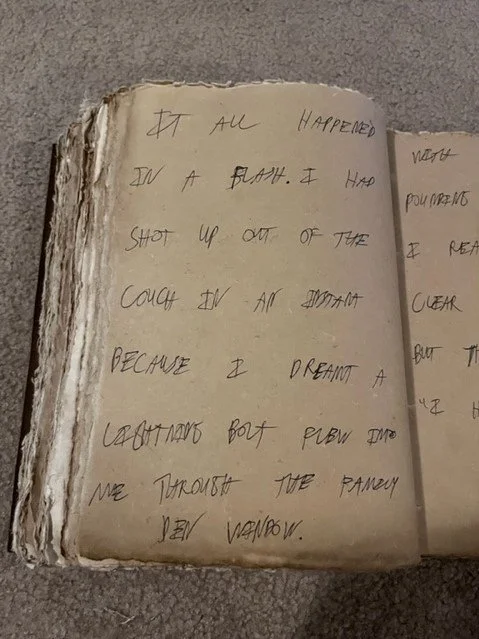 IT ALL HAPPENED
IN A FLASH. I HAD
SHOT UP OUT OF THE
COUCH IN AN INSTANT
BECAUSE I DREAMT A
LIGHTNING BOLT FLEW INTO
ME THROUGH THE FAMILY
DEN WINDOW.
WITH
POUNDING
I REA
CLEAR
BUT TH
"I H